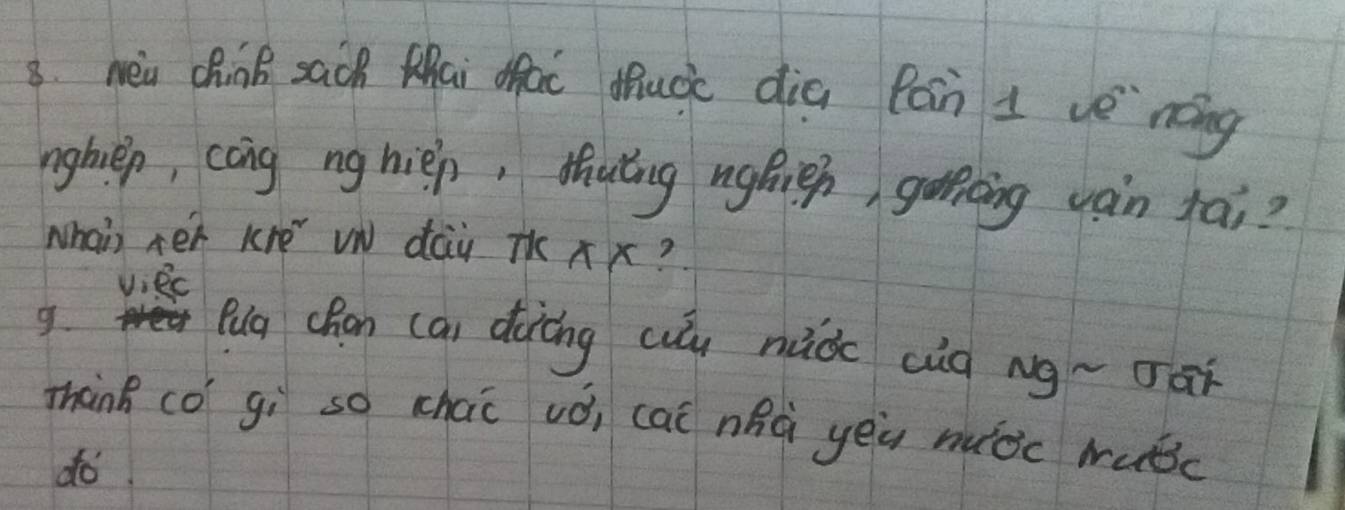 8. Nêu chính sách khai thác thuộc địa lần 1 về nông
nghiệp, công nghiệp, thương nghiệp, gthông vận tải?
Nhận xét KTế VN đầu TK XX?
việc
9. lựa chọn con đường cứu nước của Ng~ Tất
Thành có gì so khác với các nhà yêu nước trước
đó.